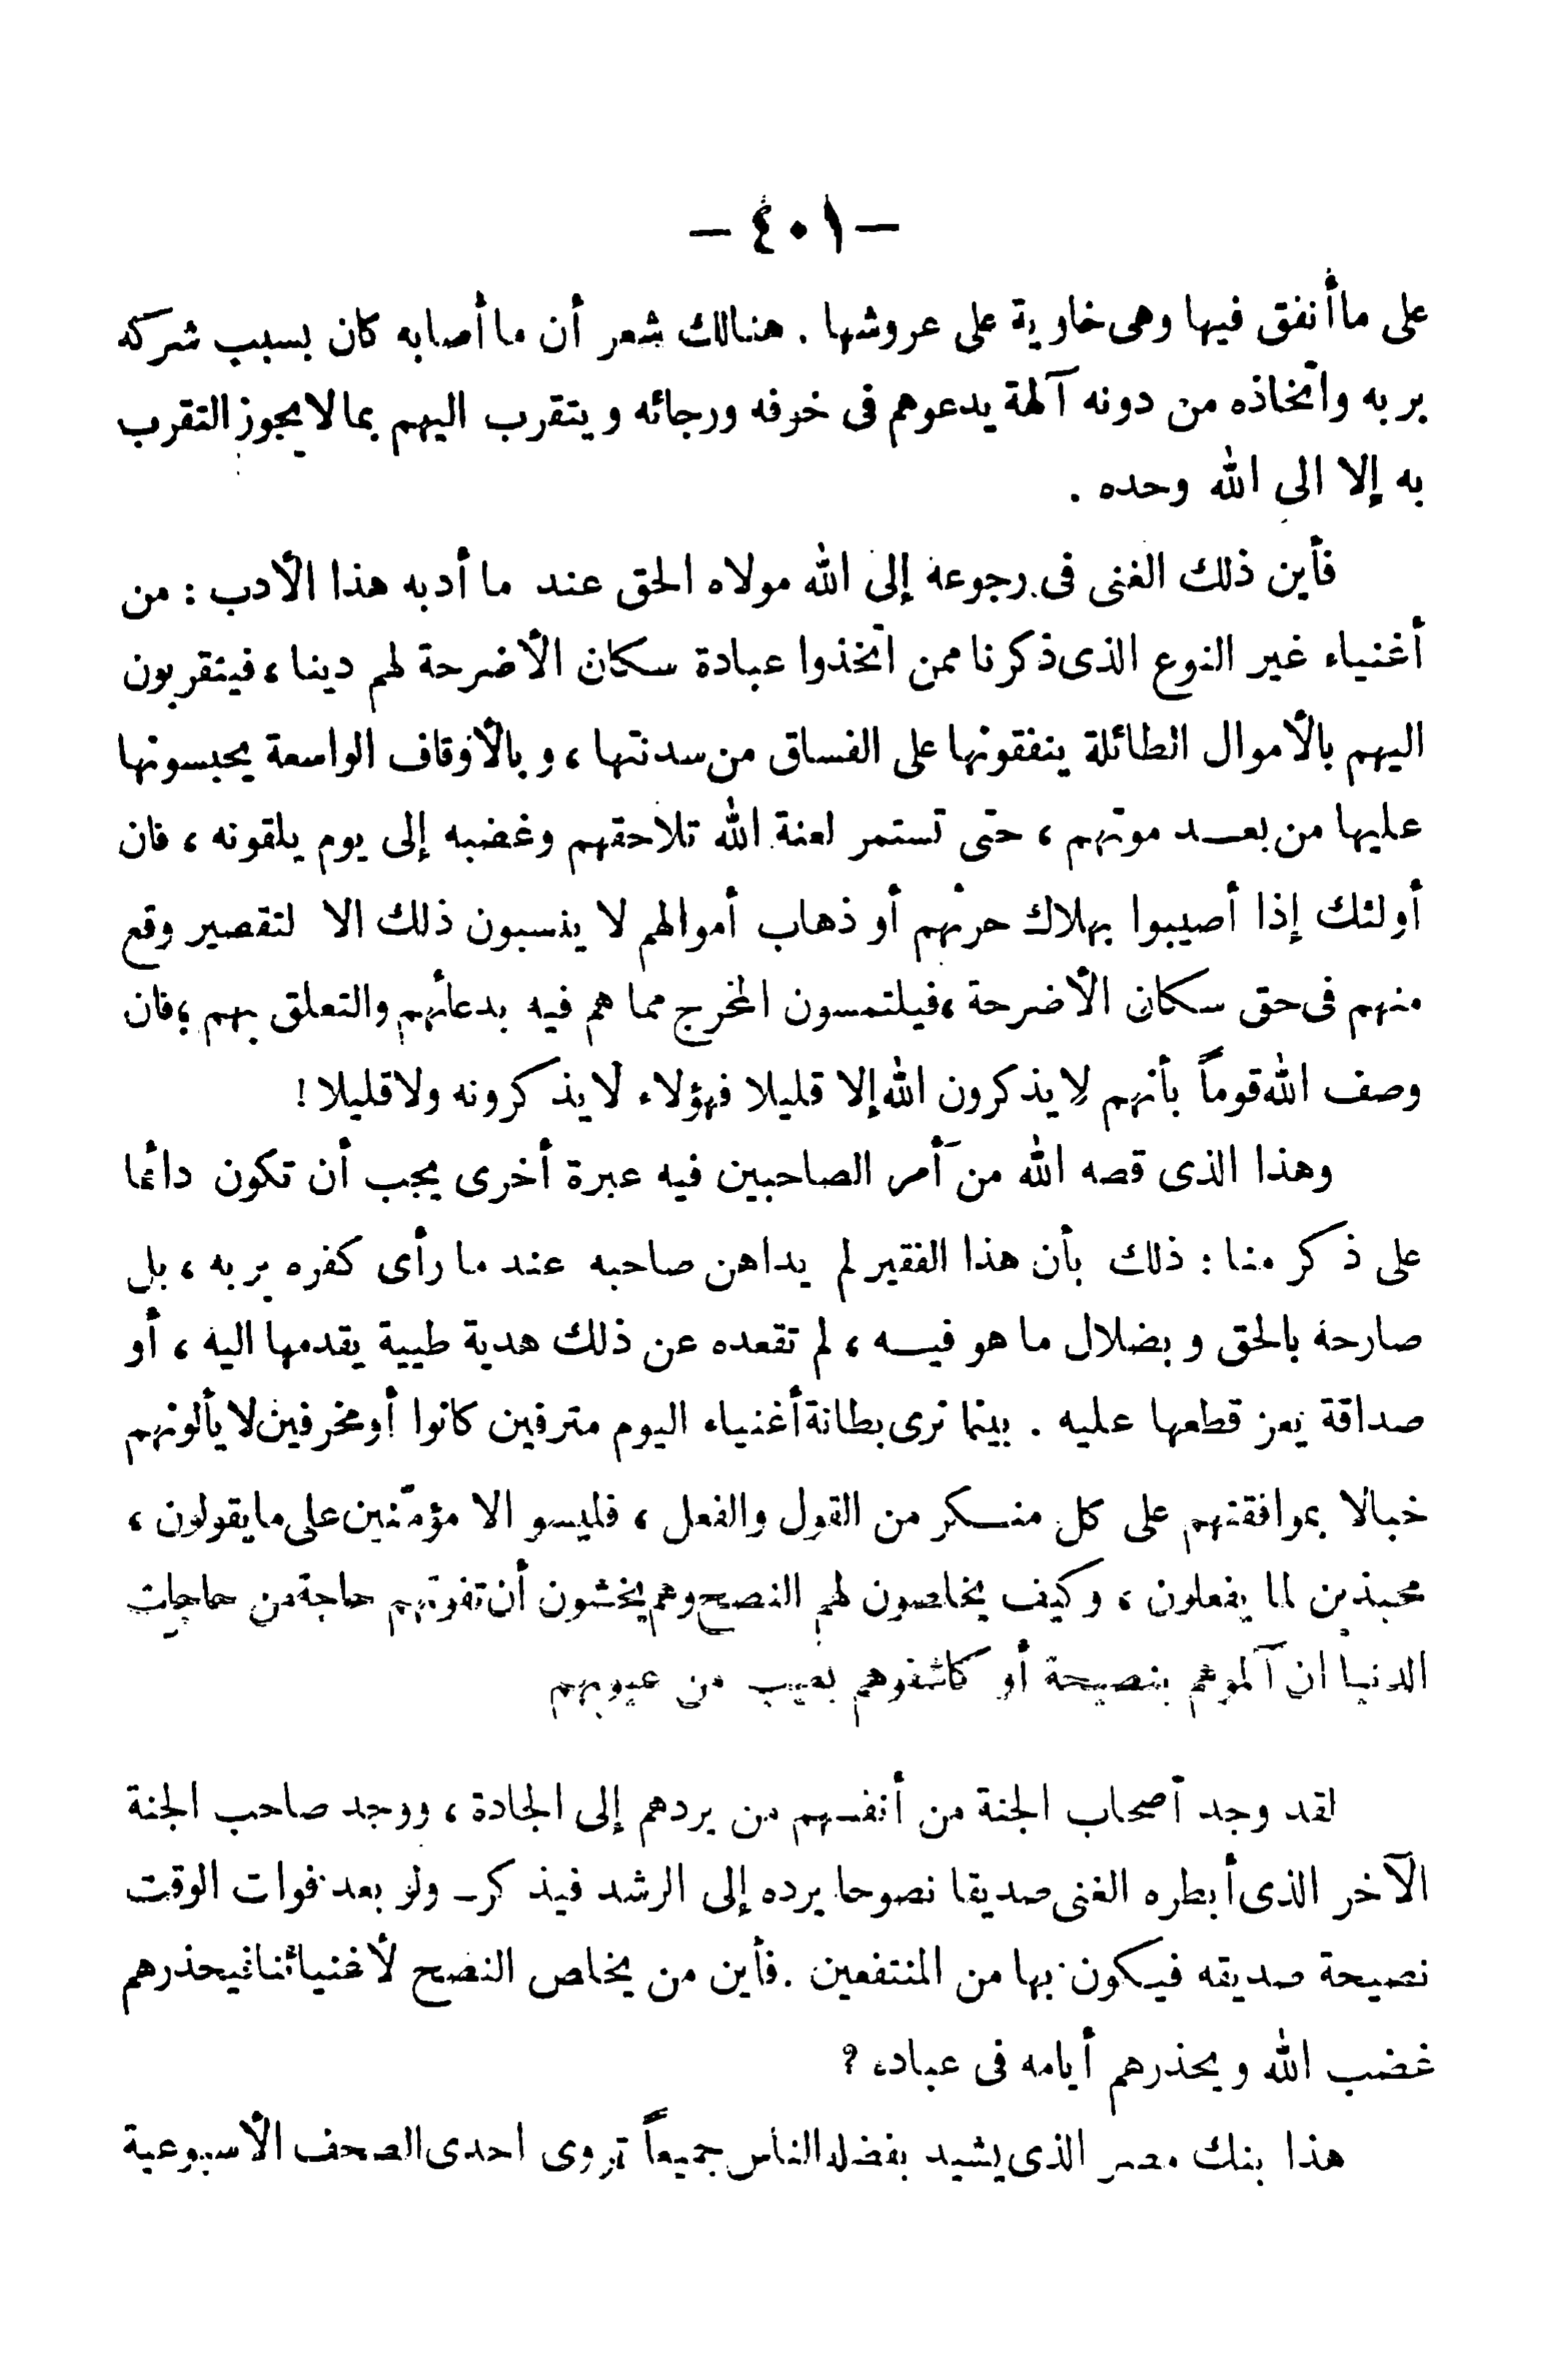 — ٤٠١ —
على ما أنفق فيها وهى خاوية على عروشها . هنالك شعر أن ما أصابه كان بسبب شركه
بربه واتخاذه من دونه آلهة يدعوهم فى خوفه ورجائه ويتقرب اليهم بما لا يجوز التقرب
به إلا الى الله وحده .
فأين ذلك الغنى فى رجوعه إلى الله مولاه الحق عند ما أدبه هذا الأدب : من
أغنياء غير النوع الذى ذكرنا ممن اتخذوا عبادة سكان الأضرحة لهم دينا ، فيتقربون
اليهم بالأموال الطائلة ينفقونها على الفساق من سدنتها ، وبالأوقاف الواسعة يحبسونها
عليها من بعد موتهم ، حتى تستمر لعنة الله تلاحقهم وغضبه إلى يوم يلقونه ، فان
أولئك إذا أصيبوا بهلاك حرثهم أو ذهاب أموالهم لا ينسبون ذلك الا لتقصير وقع
منهم فى حق سكان الأضرحة ، فيلتمسون المخرج مما هم فيه بدعائهم والتعلق بهم ؛ فان
وصف الله قوماً بأنهم لا يذكرون الله إلا قليلا فهؤلاء لا يذكرونه ولا قليلا !
وهذا الذى قصه الله من أمر الصاحبين فيه عبرة أخرى يجب أن تكون دائما
على ذكر منا : ذلك بأن هذا الفقير لم يداهن صاحبه عند ما رأى كفره بربه ، بل
صارحه بالحق وبضلال ما هو فيه ، لم تقعده عن ذلك هدية طيبة يقدمها اليه ، أو
صداقة يعز قطعها عليه . بينما نرى بطانة أغنياء اليوم مترفين كانوا أو مخرفين لا يألونهم
خبالا بموافقتهم على كل منكر من القول والفعل ، فليسو الا مؤمّنين على ما يقولون ،
محبذين لما يفعلون ، وكيف يخلصون لهم النصح وهم يخشون أن تفوتهم حاجة من حاجات
الدنيا ان آلموهم بنصيحة أو كاشفوهم بعيب من عيوبهم
لقد وجد أصحاب الجنة من أنفسهم من يردهم إلى الجادة ، ووجد صاحب الجنة
الآخر الذى أبطره الغنى صديقا نصوحا يرده إلى الرشد فيذكر ــ ولو بعد فوات الوقت
نصيحة صديقه فيكون بها من المنتفعين . فأين من يخلص النصح لأغنيائنا فيحذرهم
غضب الله ويحذرهم أيامه فى عباده ؟
هذا بنك مصر الذى يشيد بفضله الناس جميعاً تروى احدى الصحف الأسبوعية